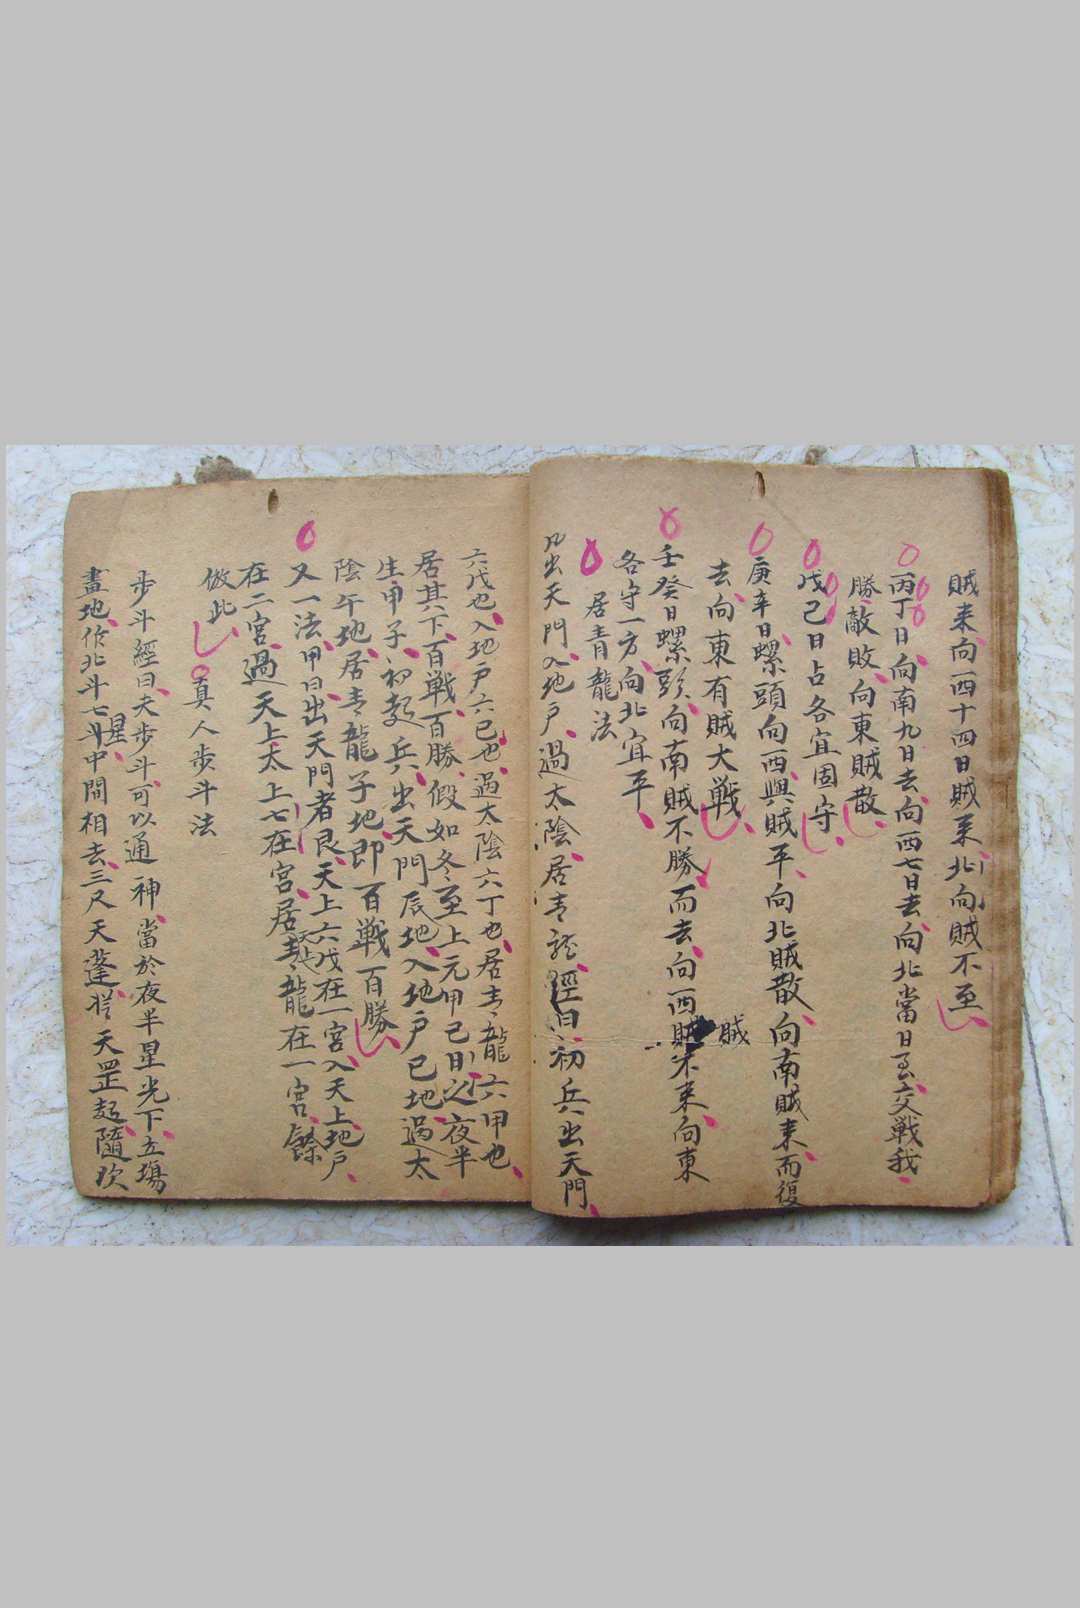 賊来向西十四日賊来北向賊不至
丙丁日向南九日去向西七日去向北當日至交戦我
勝敵敗向東賊散
戊己日占各宜固守
庚辛日螺頭向西與賊平向北賊散向南賊来而復
去向東有賊大戦
壬癸日螺頭向南賊不勝而去向西賊不来向東
賊
各守一方向北宜平
居青龍法
凡出天門入地戸過太陰居青龍經曰初兵出天門
六戊也入地戸六己也過太陰六丁也居青龍六甲也
居其下百戦百勝假如冬至上元甲己日之夜半
生甲子初起兵出天門辰地入地戸巳地過太
陰午地居青龍子地即百戦百勝
又一法甲日出天門者艮天上六戊在一宮入天上地戸
在二宮過天上太上七在宮居青龍在一宮餘
倣此
真人步斗法
步斗經曰夫步斗可以通神當於夜半星光下立場
畫地作北斗七星中間相去三尺天蓬從天罡起隨次